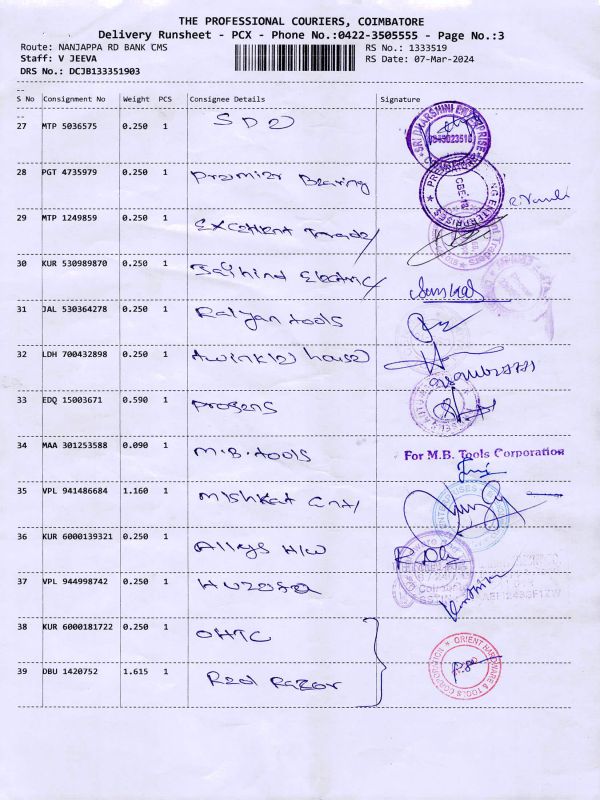 THE PROFESSIONAL COURIERS, COIMBATORE
Delivery Runsheet - PCX - Phone No.:0422-3505555 - Page No.:3
Route: NANJAPPA RD BANK CMS RS No.: 1333519
Staff: V JEEVA RS Date: 07-Mar-2024
DRS No.: DCJB133351903
S No Consignment No Weight PCS Consignee Details Signature
27 MTP 5036575 0.250 1 SDO
SRI DHARSHINI ENTERPRISE
28 PGT 4735979 0.250 1 Premier Bearing
CBE-18
NG ENTERPRISES
29 MTP 1249859 0.250 1 Excellent Trade
30 KUR 530989870 0.250 1 Jaihind Electric
31 JAL 530364278 0.250 1 Ralyan tools
32 LDH 700432898 0.250 1 twinkle house
33 EDQ 15003671 0.590 1 progens
34 MAA 301253588 0.090 1 M.B. tools
For M.B. Tools Corporation
35 VPL 941486684 1.160 1 Mishkat Ent
ENTERPRISES
36 KUR 6000139321 0.250 1 Alleys H/W
37 VPL 944998742 0.250 1 Huzefa
38 KUR 6000181722 0.250 1 OHTC
ORIENT HARDWARE & TOOLS CORPORATION
39 DBU 1420752 1.615 1 Red Razor